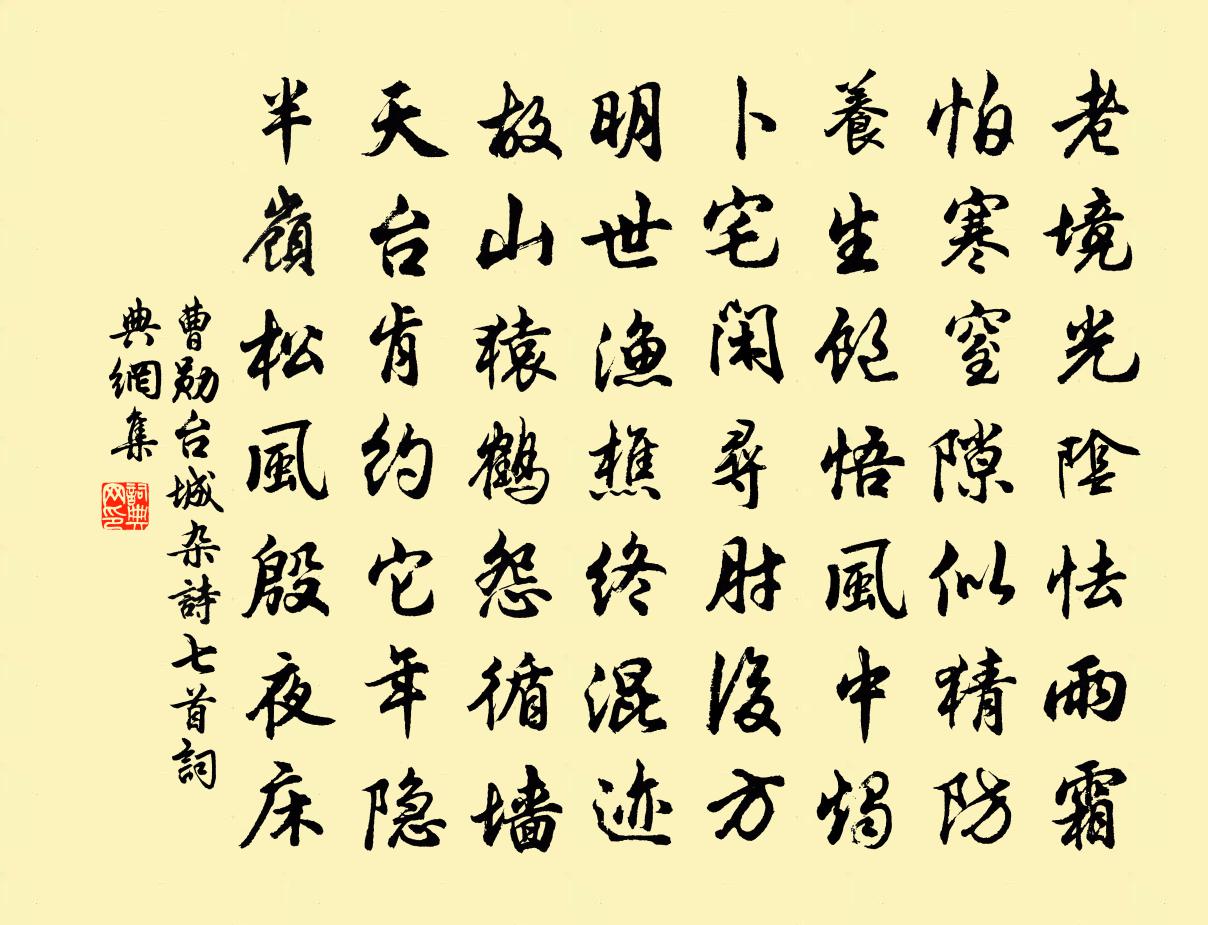 老境光陰怯雨霜
怕寒窒隙似猜防
養生飽悟風中燭
卜宅閑尋肘後方
明世漁樵終混迹
故山猿鶴怨循墙
天台肯约它年隐
半嶺松風殷夜床
曹勛台城杂詩七首詞
典網集
詞典
网印